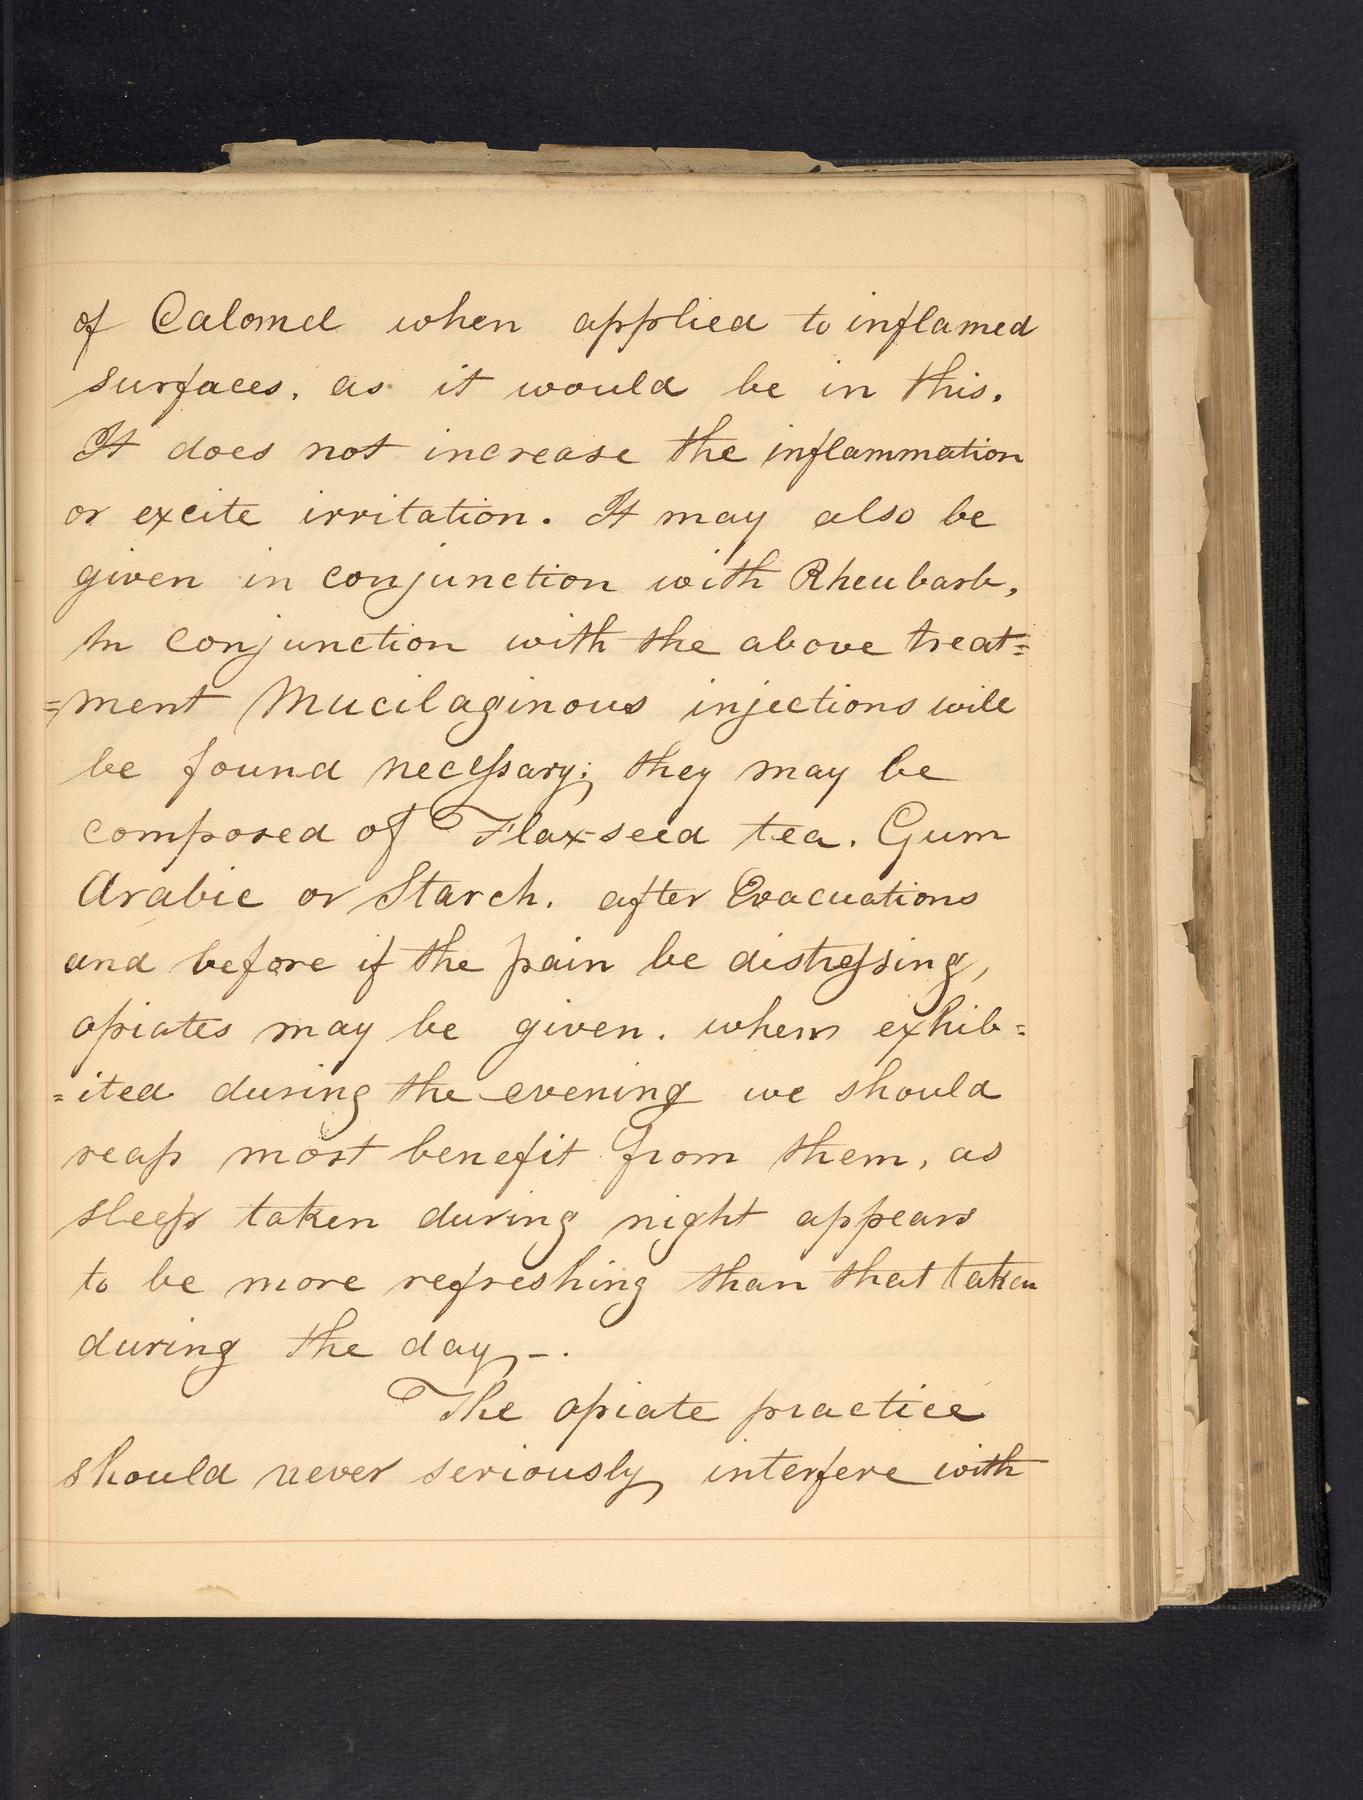 of Calomel when applied to inflamed
surfaces, as it would be in this.
It does not increase the inflammation
or excite irritation. It may also be
given in conjunction with Rheubarb,
In conjunction with the above treat=
=ment Mucilaginous injections will
be found necessary; they may be
composed of Flax-seed tea. Gum
Arabic or Starch. after Evacuations
and before if the pain be distressing,
opiates may be given. when exhib=
=ited during the evening we should
reap most benefit from them, as
sleep taken during night appears
to be more refreshing than that taken
during the day -.
The opiate practice
should never seriously interfere with